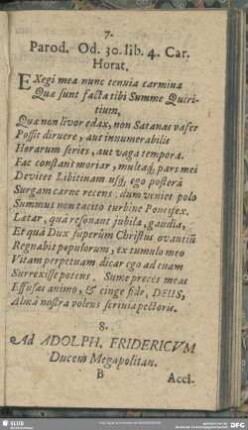 7.
Parod. Od. 30. lib. 4. Car.
Horat.
EXegi mea nunc tenuia carmina
Quæ sunt facta tibi Summe Quiri-
tium,
Quæ non livor edax, non Satanas vafer
Possit diruere, aut innumerabilis
Horarum series, aut vaga tempora.
Fac constant moriar, multaq́; pars mei
Devitet Libitinam usq́;, ego posterâ
Surgam carne recens: dum veniet polo
Summus non tacito turbine Pontifex.
Lætar, quà resonant jubila, gaudia,
Et quà Dux superûm Christus ovantiũ
Regnabit populorum, ex tumulo meo
Vitam perpetuam dicar ego ad tuam
Surrexisse potens. Sume preces meas
Effusas animo, & cinge fide, DEUS,
Almâ nostra volens scrinia pectoris.
8.
Ad ADOLPH. FRIDERICVM
Ducem Megapolitan.
B
Accl.
SLUB